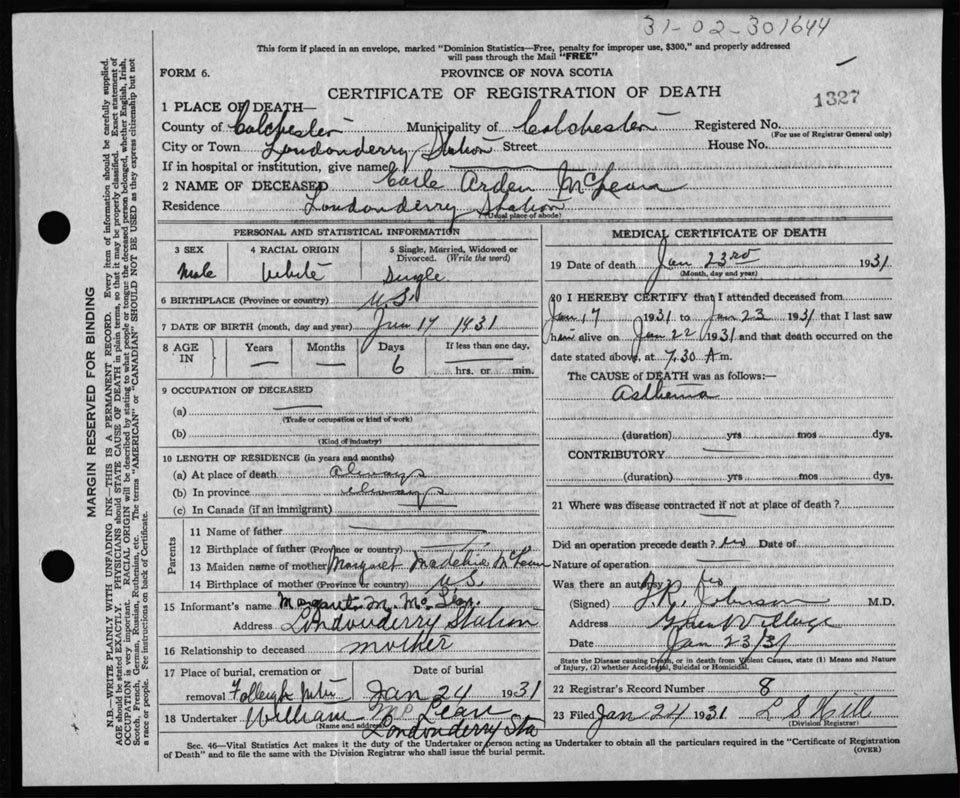 31-02-301644
This form if placed in an envelope, marked "Dominion Statistics—Free, penalty for improper use, $300," and properly addressed
will pass through the Mail "FREE"
FORM 6.
PROVINCE OF NOVA SCOTIA
CERTIFICATE OF REGISTRATION OF DEATH
1327
1 PLACE OF DEATH—
County of Colchester Municipality of Colchester Registered No.
(For use of Registrar General only)
City or Town Londonderry Station Street House No.
If in hospital or institution, give name
2 NAME OF DECEASED Carle Arden McLean
Residence Londonderry Station
(Usual place of abode)
PERSONAL AND STATISTICAL INFORMATION
3 SEX 4 RACIAL ORIGIN 5 Single, Married, Widowed or Divorced. (Write the word)
Male White Single
6 BIRTHPLACE (Province or country) N.S.
7 DATE OF BIRTH (month, day and year) Jan 17 1931
8 AGE IN Years Months Days If less than one day.
— — 6 hrs. or min.
9 OCCUPATION OF DECEASED
(a) —
(Trade or occupation or kind of work)
(b)
(Kind of industry)
10 LENGTH OF RESIDENCE (in years and months)
(a) At place of death always
(b) In province always
(c) In Canada (if an immigrant) —
Parents
11 Name of father —
12 Birthplace of father (Province or country) —
13 Maiden name of mother Margaret McLean
14 Birthplace of mother (Province or country) N.S.
15 Informant's name Margaret M. McLean
Address Londonderry Station
16 Relationship to deceased mother
17 Place of burial, cremation or removal Folleigh Date of burial Jan 24 1931
18 Undertaker William McLean
(Name and address) Londonderry Sta
MEDICAL CERTIFICATE OF DEATH
19 Date of death Jan 23rd 1931
(Month, day and year)
20 I HEREBY CERTIFY that I attended deceased from
Jan 17 1931 to Jan 23 1931 that I last saw
him alive on Jan 22 1931 and that death occurred on the
date stated above, at 7.30 A m.
The CAUSE of DEATH was as follows:—
Asthenia
(duration) yrs mos dys.
CONTRIBUTORY —
(duration) yrs mos dys.
21 Where was disease contracted if not at place of death?
—
Did an operation precede death? no Date of
Nature of operation
Was there an autopsy no
(Signed) Johnson M.D.
Address Great Village
Date Jan 23/31
State the Disease causing Death, or in death from Violent Causes, state (1) Means and Nature
of Injury, (2) whether Accidental, Suicidal or Homicidal.
22 Registrar's Record Number 8
23 Filed Jan 24 1931 L S Hill
(Division Registrar)
Sec. 46—Vital Statistics Act makes it the duty of the Undertaker or person acting as Undertaker to obtain all the particulars required in the "Certificate of Registration
of Death" and to file the same with the Division Registrar who shall issue the burial permit.
(OVER)
MARGIN RESERVED FOR BINDING
N.B.—WRITE PLAINLY WITH UNFADING INK—THIS IS A PERMANENT RECORD. Every item of information should be carefully supplied.
AGE should be stated EXACTLY. PHYSICIANS should STATE CAUSE OF DEATH in plain terms, so that it may be properly classified. Exact statement of
OCCUPATION is very important. RACIAL ORIGIN will be described by stating to what people or tongue the deceased person belonged, whether English, Irish,
Scotch, French, German, Russian, Ruthenian, etc. The terms "AMERICAN" or "CANADIAN" SHOULD NOT BE USED as they express citizenship but not
a race or people. See instructions on back of Certificate.